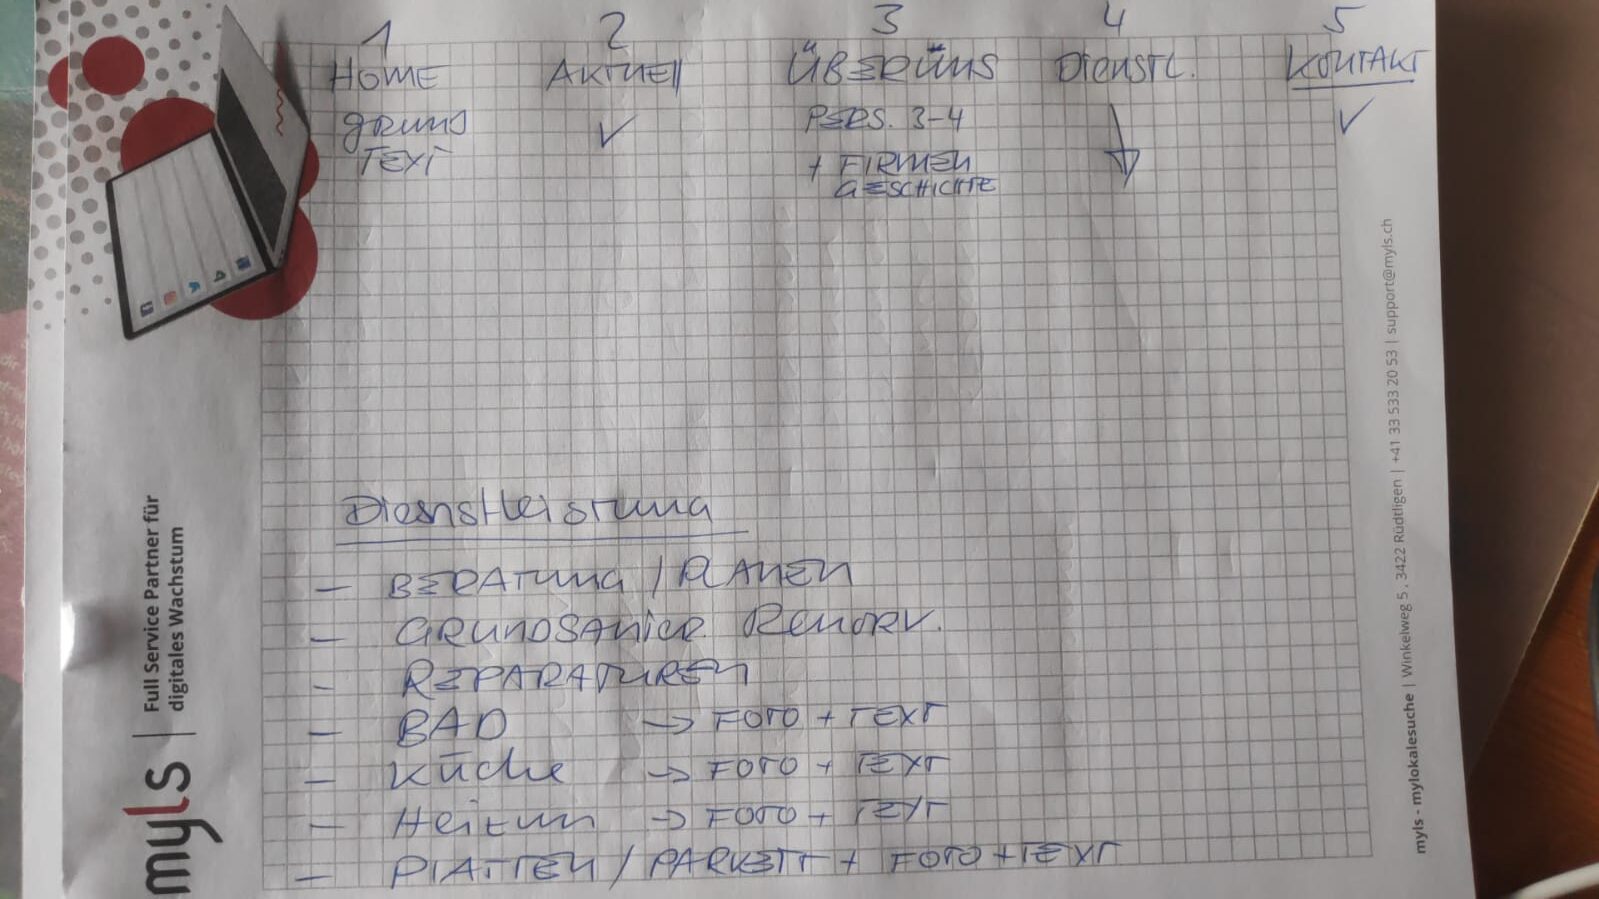 1 2 3 4 5
HOME AKTUELL ÜBER UNS DIENSTL. KONTAKT
GRUND PERS. 3-4
TEXT + FIRMEN
GESCHICHTE
Dienstleistung
- BERATUNG / PLANEN
- GRUNDSANIER RENOV.
- REPARATUREN
- BAD -> FOTO + TEXT
- Küche -> FOTO + TEXT
- Heizun -> FOTO + TEXT
- PLATTEN / PARKETT + FOTO + TEXT
myls | Full Service Partner für
digitales Wachstum
myls - mylokalesuche | Winkelweg 5 , 3422 Rüdtligen | +41 33 533 20 53 | support@myls.ch